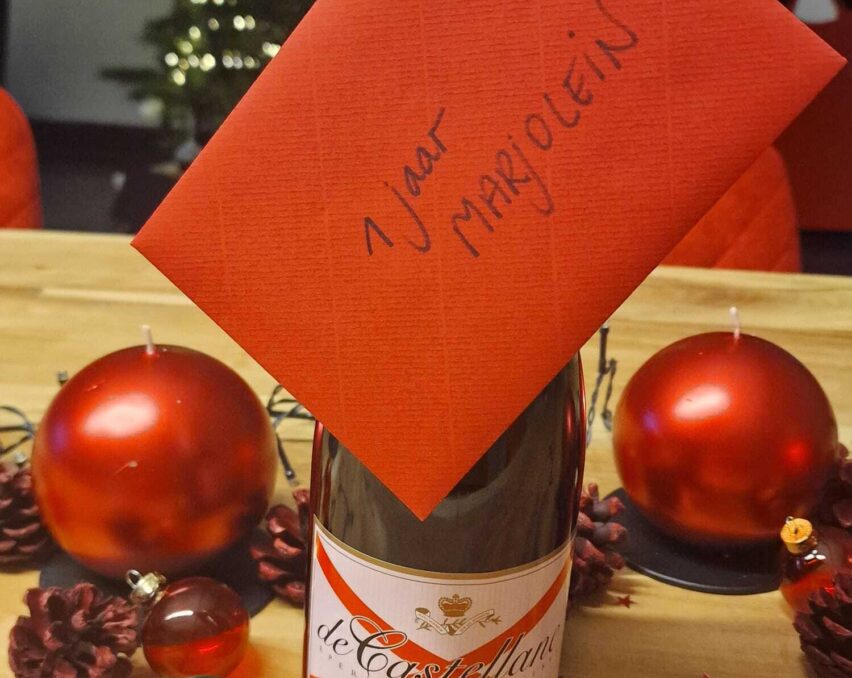 1 jaar
MARJOLEIN
de Castellane